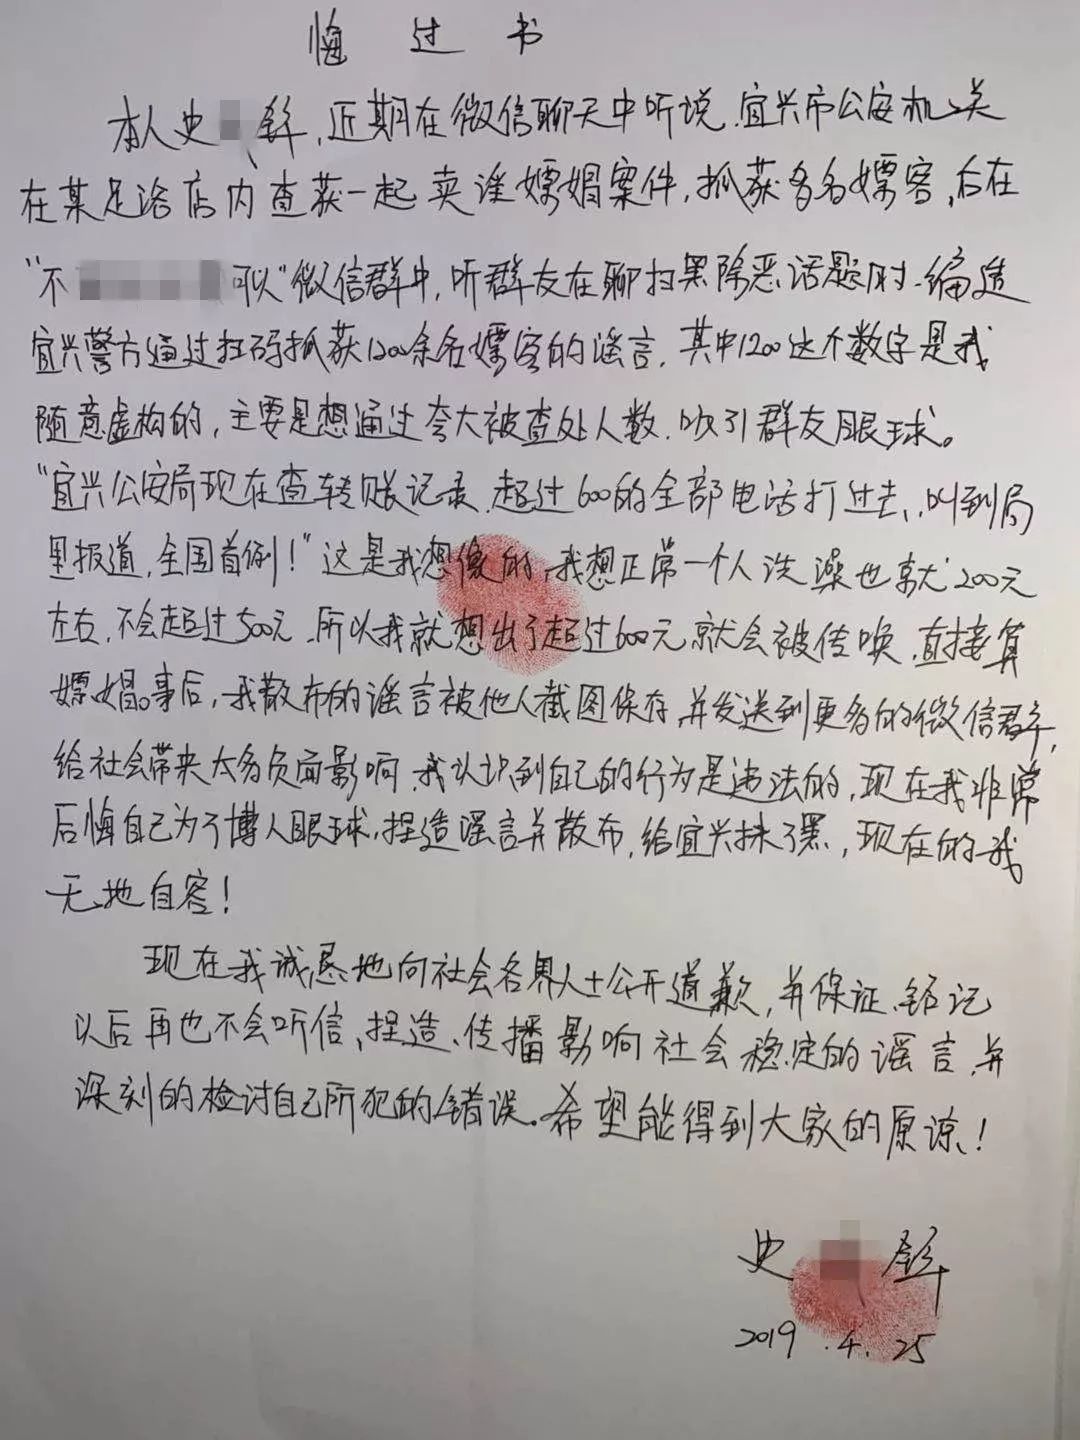 悔过书
本人史 ,近期在微信聊天中听说.宜兴市公安机关
在某足浴店内查获一起卖淫嫖娼案件,抓获多名嫖客,后在
"不 可以"微信群中,听群友在聊扫黑除恶话题时.编造
宜兴警方通过扫码抓获1200余名嫖客的谣言.其中1200这个数字是我
随意虚构的,主要是想通过夸大被查处人数.吸引群友眼球。
"宜兴公安局现在查转账记录.超过600的全部电话打过去,叫到局
里报道,全国首例!"这是我想像的,我想正常一个人洗澡也就200元
左右.不会超过500元.所以我就想出了超过600元就会被传唤.直接算
嫖娼。事后,我散布的谣言被他人截图保存,并发送到更多的微信群,
给社会带来太多负面影响.我认识到自己的行为是违法的,现在我非常
后悔自己为了博人眼球,捏造谣言并散布,给宜兴抹了黑,现在的我
无地自容!
现在我诚恳地向社会各界人士公开道歉,并保证.铭记
以后再也不会听信、捏造、传播影响社会稳定的谣言,并
深刻的检讨自己所犯的错误。希望能得到大家的原谅!
史
2019.4.25